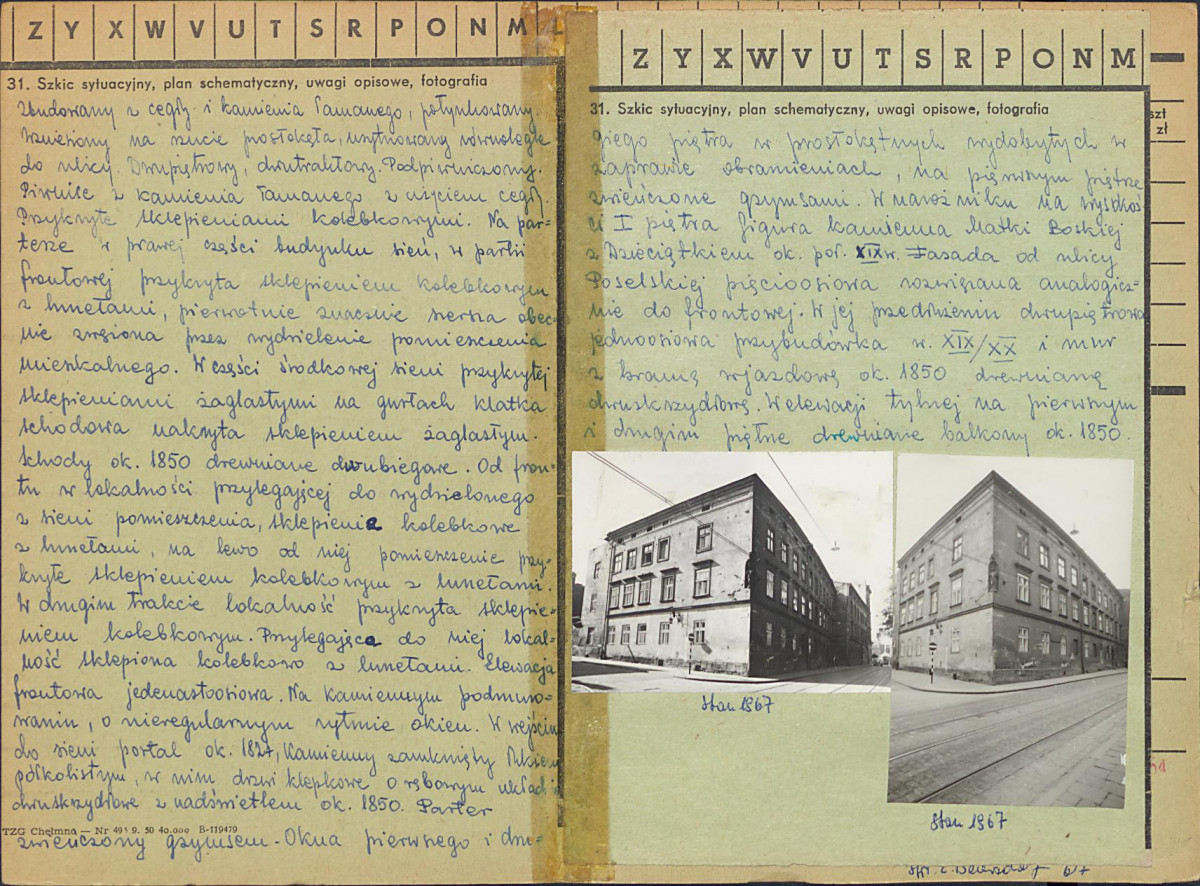 Z Y X W V U T S R P O N M L
31. Szkic sytuacyjny, plan schematyczny, uwagi opisowe, fotografia
Zbudowany z cegły i kamienia łamanego, potynkowany.
Wzniesiony na rzucie prostokąta, usytuowany równolegle
do ulicy. Dwupiętrowy, dwutraktowy. Podpiwniczony.
Piwnice z kamienia łamanego z użyciem cegły.
Przykryte sklepieniami kolebkowymi. Na par-
terze w prawej części budynku sień, w partii
frontowej przykryta sklepieniem kolebkowym
z lunetami, pierwotnie znacznie szersza obec-
nie zwężona przez wydzielenie pomieszczenia
mieszkalnego. W części środkowej sieni przykrytej
sklepieniami żaglastymi na gurtach klatka
schodowa nakryta sklepieniem żaglastym.
Schody ok. 1850 drewniane dwubiegowe. Od fron-
tu w lokalności przylegającej do wydzielonego
z sieni pomieszczenia, sklepienie kolebkowe
z lunetami, na lewo od niej pomieszczenie przy-
kryte sklepieniem kolebkowym z lunetami.
W drugim trakcie lokalność przykryta sklepie-
niem kolebkowym. Przylegająca do niej lokal-
ność sklepiona kolebkowo z lunetami. Elewacja
frontowa jedenastoosiowa. Na kamiennym podmuro-
waniu, o nieregularnym rytmie okien. W wejściu
do sieni portal ok. 1827, kamienny zamknięty łukiem
półkolistym, w nim drzwi klepkowe o rębowym układzie
dwuskrzydłowe z nadświetlem ok. 1850. Parter
TZG Chełmno — Nr 495 9. 50 40.000 B-119479
zwieńczony gzymsem. Okna pierwszego i dru-
Z Y X W V U T S R P O N M
31. Szkic sytuacyjny, plan schematyczny, uwagi opisowe, fotografia
giego piętra w prostokątnych wydobytych w
zaprawie obramieniach, na pierwszym piętrze
zwieńczone gzymsami. W narożniku na wysokoś
ci I piętra figura kamienna Matki Boskiej
z Dzieciątkiem ok. poł. XIX w. Fasada od ulicy
Poselskiej pięcioosiowa rozwiązana analogicz-
nie do frontowej. W jej przedłużeniu dwupiętrowa
jednoosiowa przybudówka w. XIX/XX i mur
z bramą wjazdową ok. 1850 drewnianą
dwuskrzydłową. W elewacji tylnej na pierwszym
i drugim piętrze drewniane balkony ok. 1850.
Stan 1967
Stan 1967
szt
zł
67